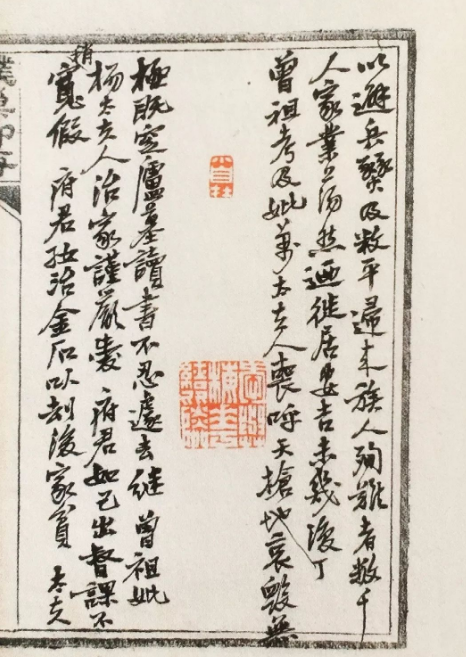 以避兵燹及数平歸来族人殉難者数千
人家業已蕩然迺徙居安吉未幾復丁
曾祖考及妣萬太夫人喪呼天槍地哀毀無
極既窆廬墓讀書不忍遽去继 曾祖妣
楊太夫人治家謹嚴爱 府君如己出督課不
稍寬假 府君治金石以劫後家貧 太夫